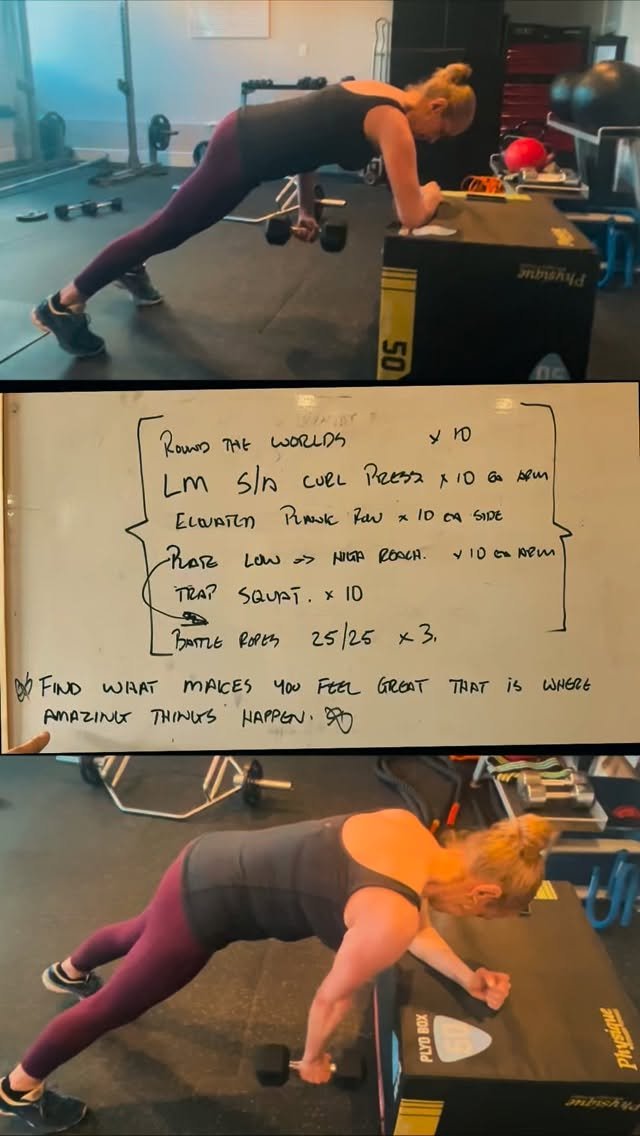 Physique
50
ROUND THE WORLDS × 10
LM S/A CURL PRESS × 10 EA ARM
ELEVATED PLANK ROW × 10 EA SIDE
PLATE LOW => HIGH REACH. × 10 EA ARM
TRAP SQUAT. × 10
BATTLE ROPES 25/25 × 3.
FIND WHAT MAKES YOU FEEL GREAT THAT IS WHERE
AMAZING THINGS HAPPEN.
PLYO BOX
Physique
Physique